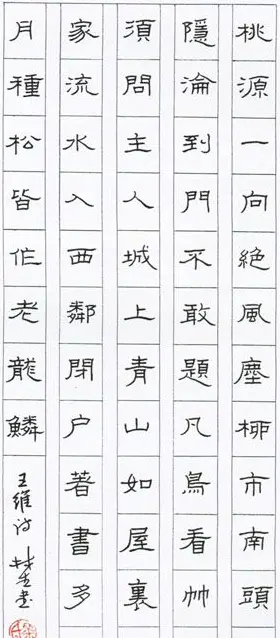 桃源一向絶風塵桺市南頭
隱淪到門不敢題凡鳥看竹
須問主人城上青山如屋裏
家流水入西鄰閉户著書多
月種松皆作老龍鱗
王維詩 書